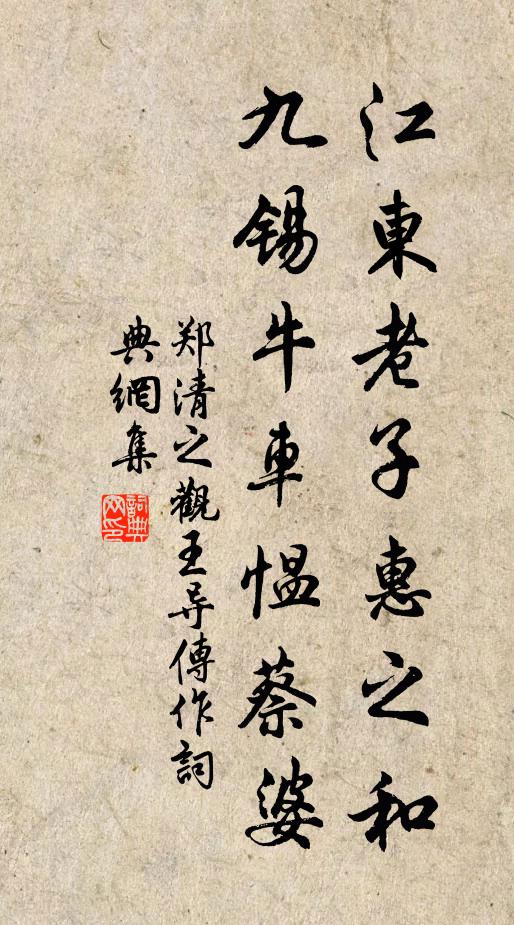 江東老子惠之和
九锡牛車愠蔡婆
郑清之觀王导傳作詞
典網集
詞典网印